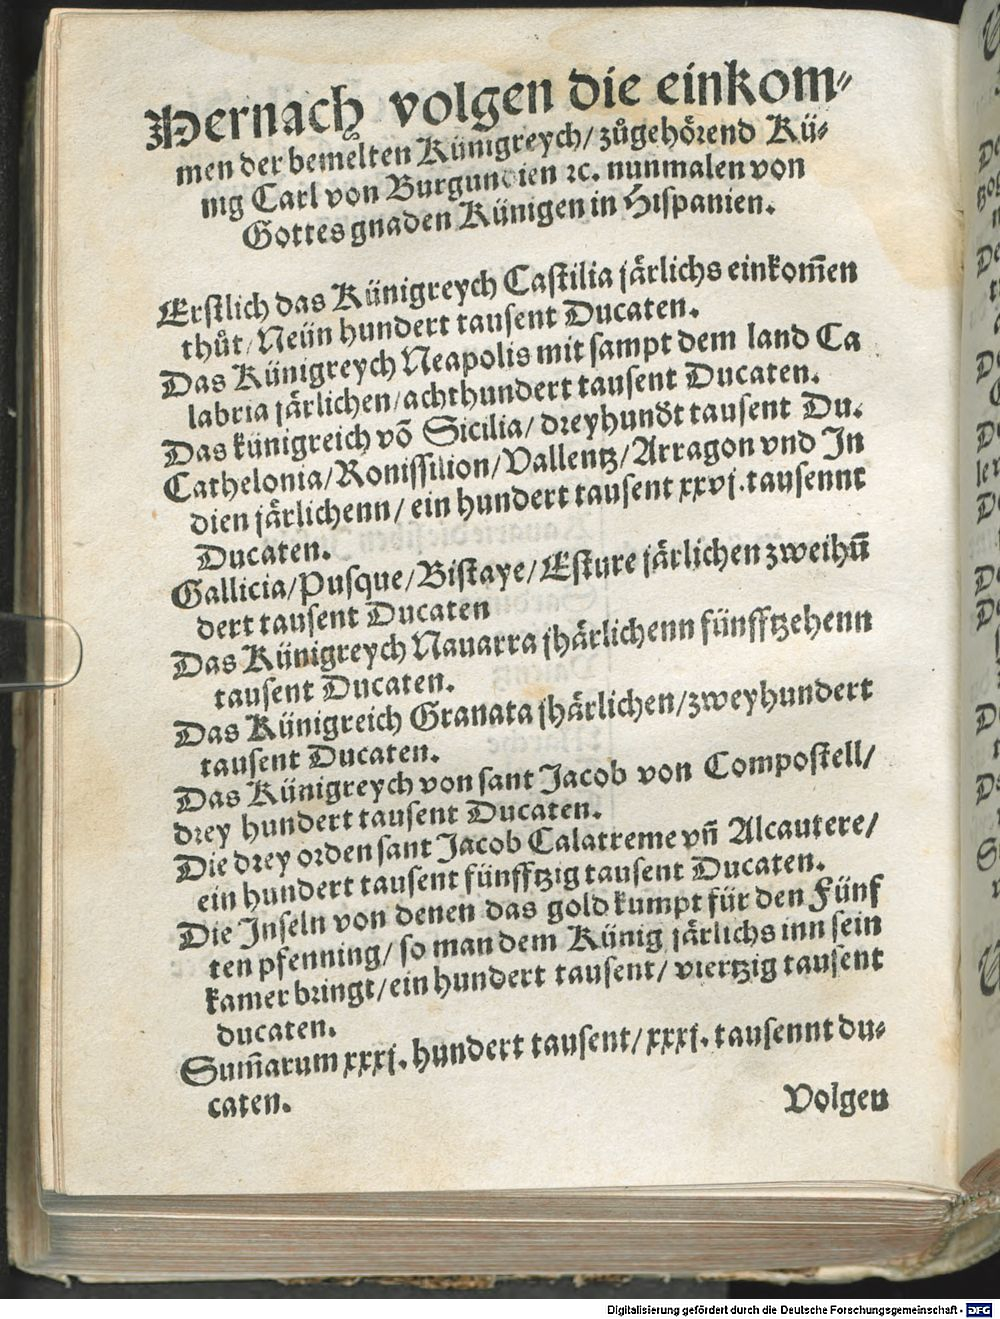 Hernach volgen die einkom⸗
men der bemelten Künigreych/ zůgehörend Kü⸗
nig Carl von Burgundien ꝛc. nunmalen von
Gottes gnaden Künigen in Hispanien.
Erstlich das Künigreych Castilia järlichs einkom̄en
thůt/ Neün hundert tausent Ducaten.
Das Künigreych Neapolis mit sampt dem land Ca
labria järlichen/ achthundert tausent Ducaten.
Das künigreich võ Sicilia/ dreyhundt tausent Du.
Cathelonia/ Ronissilion/ Vallentz/ Arragon vnd In
dien järlichenn/ ein hundert tausent xxvj. tausennt
Ducaten.
Gallicia/ Pusque/ Biskaye/ Esture järlichen zweihū
dert tausent Ducaten
Das Künigreych Nauarra jhärlichenn fünfftzehenn
tausent Ducaten.
Das Künigreich Granata jhärlichen/ zweyhundert
tausent Ducaten.
Das Künigreych von sant Jacob von Compostell/
drey hundert tausent Ducaten.
Die drey orden sant Jacob Calatreme vn̄ Alcautere/
ein hundert tausent fünfftzig tausent Ducaten.
Die Inseln von denen das gold kumpt für den Fünf
ten pfenning/ so man dem Künig järlichs inn sein
kamer bringt/ ein hundert tausent/ viertzig tausent
ducaten.
Sum̄arum xxxj. hundert tausent/ xxxj. tausennt du⸗
caten.
Volgen
Digitalisierung gefördert durch die Deutsche Forschungsgemeinschaft - DFG